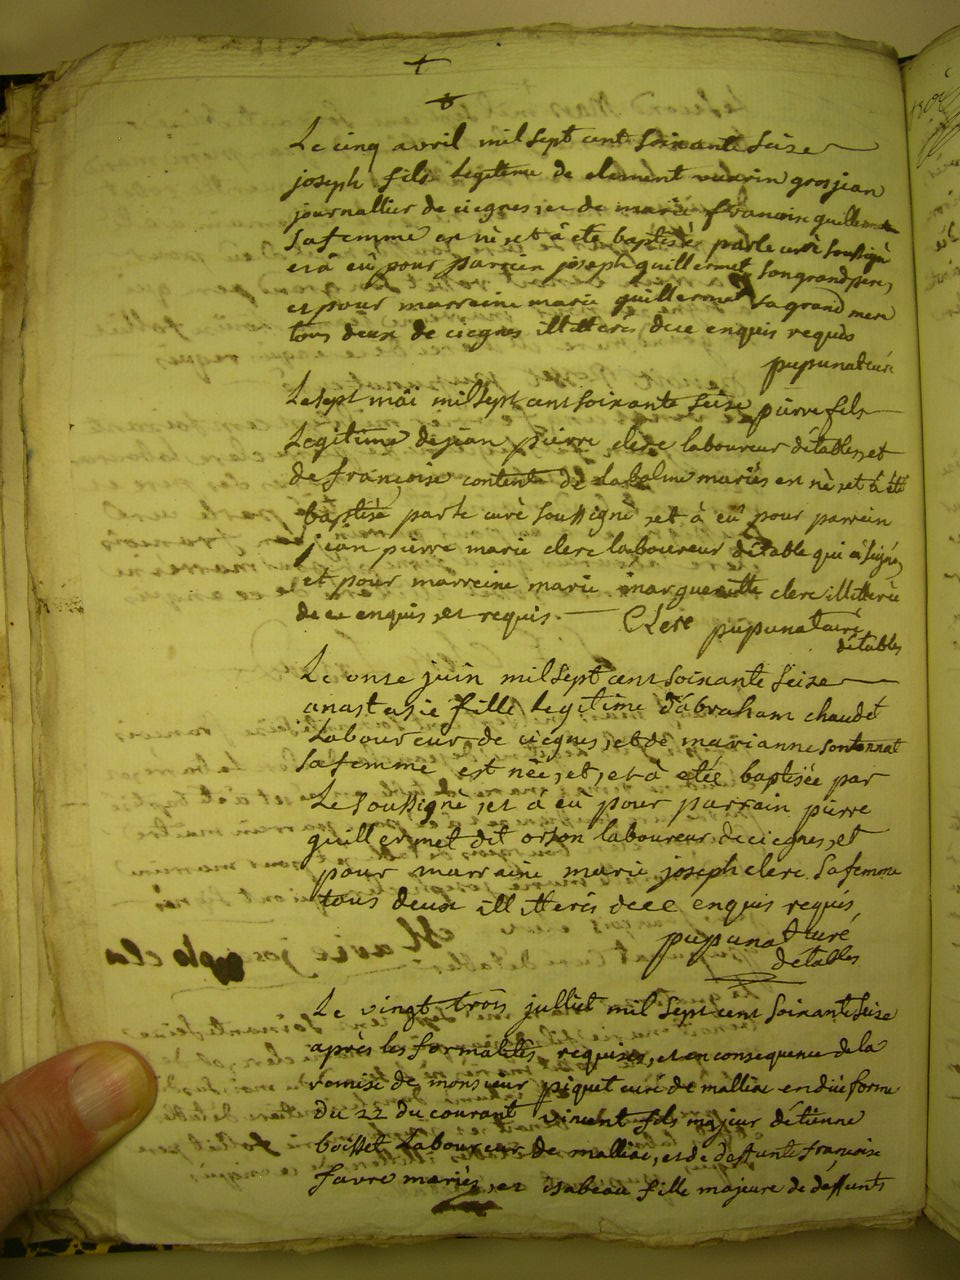 Le cinq avril mil sept cent soixante seise
joseph fils legitime de clement vuarin grosjean
journallier de ciegnes, et de marie francoise guillermet
sa femme en nè, et à ete baptisè par le curè soussignè
et à eû pour parrein joseph guillermet son grand pere,
et pour marreine marie guillermet sa grand mere
tous deux de ciegnes illitterès de ce enquis requis
pupunat curè
Le sept mai mil sept cent soixante seise pierre fils
Legitime de jean pierre clerc laboureur détables, et
de francoise content de Labalme mariès en nè, et à étè
baptisè par le curè soussignè, et à eû pour parrein
jean pierre marie clerc laboureur détable qui à signè,
et pour marreine marie margueritte clerc illitterée
de ce enquis, et requis. Clerc pupunat curè
détables
Le onse juin mil sept cent soixante seise
anastasie fille legitime d'abraham chaudet
Laboureur de ciegnes, et de marianne sontonnat
sa femme est nèe, et, et à etèe baptisèe par
Le soussignè, et à eu pour parrain pierre
guillermet dit orson laboureur de ciegnes, et
pour marraine marie joseph clerc sa femme
tous deux illitterès de ce enquis requis
pupunat curè
detables
Le vingt trois julliet mil sept cent soixante seise
après les formalitès requises, et en consequence de la
remise de monsieur piquet curé de malliac en düe forme
du 22 du courant vincent fils majeur détienne
boisset Laboureur de malliac, et de deffunte françoise
favre mariès, et isabeau fille majeure de deffunts